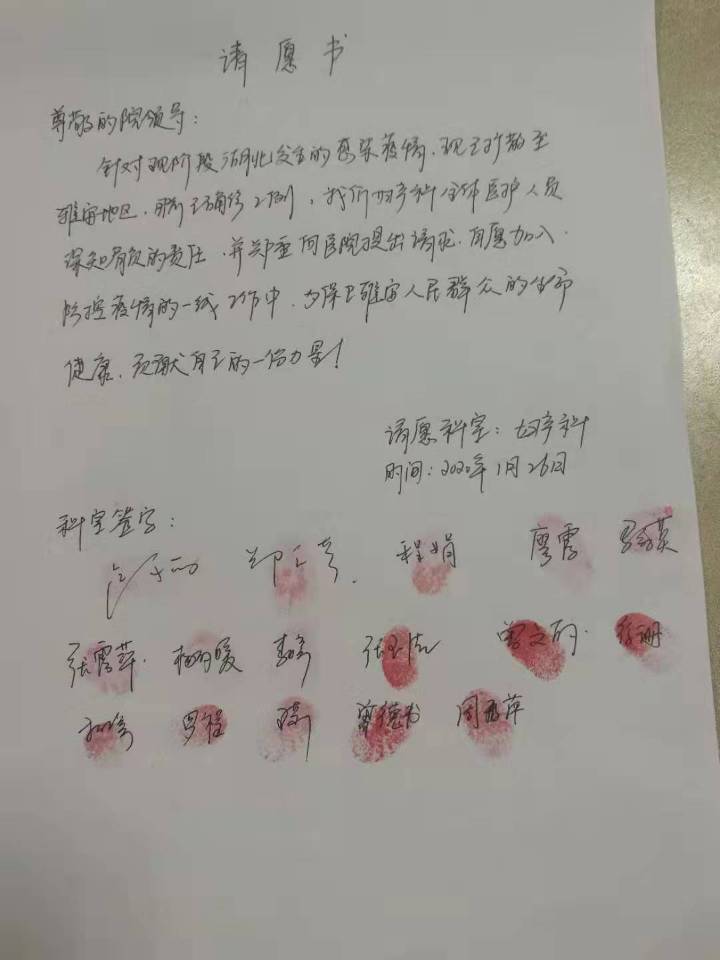 请愿书
尊敬的院领导:
针对现阶段湖北发生的感染疫情,现已扩散至
雅安地区,确诊2例,我们妇产科全体医护人员
深知肩负的责任,并郑重向医院提出请求,自愿加入
防控疫情的一线工作中,为保卫雅安人民群众的生命
健康,贡献自己的一份力量!
请愿科室:妇产科
时间:2020年1月26日
科室签字:
程娟 廖霞
张雪萍
罗程 曾德书